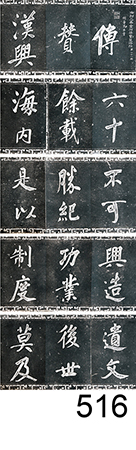 傳
贊
漢興
六十
餘載
海內
不可
勝紀
是以
興造
功業
制度
遺文
後世
莫及
516